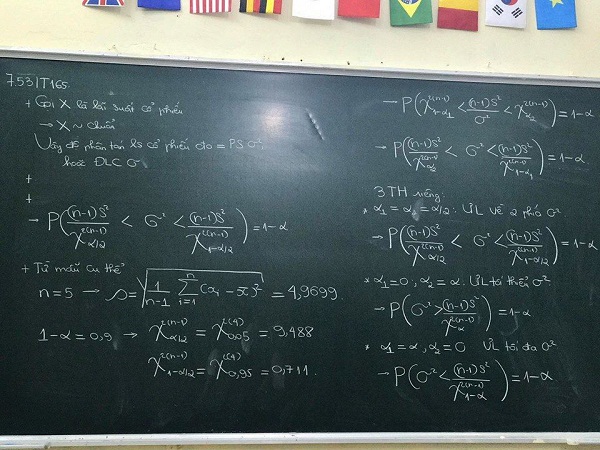 7.53 | T165.
+ Gọi X là lãi suất cổ phiếu
→ X ~ chuẩn
Vậy độ phân tán ls cổ phiếu đo = PS σ²,
hoặc ĐLC σ
+
+
→ P((n-1)S²/χ²⁽ⁿ⁻¹⁾_α/2 < σ² < (n-1)S²/χ²⁽ⁿ⁻¹⁾_1-α/2) = 1-α
+ Từ mẫu cụ thể
n = 5 → s = √(1/(n-1) Σ_{i=1}^{n} (xᵢ - x̄)²) = 4,9699.
1-α = 0,9 → χ²⁽ⁿ⁻¹⁾_α/2 = χ²⁽⁴⁾_0,05 = 9,488
χ²⁽ⁿ⁻¹⁾_1-α/2 = χ²⁽⁴⁾_0,95 = 0,711.
→ P(χ²⁽ⁿ⁻¹⁾_1-α₁ < (n-1)S²/σ² < χ²⁽ⁿ⁻¹⁾_α₂) = 1-α
→ P((n-1)S²/χ²⁽ⁿ⁻¹⁾_α₂ < σ² < (n-1)S²/χ²⁽ⁿ⁻¹⁾_1-α₁) = 1-α
3 TH riêng:
* α₁ = α₂ = α/2: ƯL về 2 phía σ²
→ P((n-1)S²/χ²⁽ⁿ⁻¹⁾_α/2 < σ² < (n-1)S²/χ²⁽ⁿ⁻¹⁾_1-α/2) = 1-α
* α₁ = 0, α₂ = α. ƯL tối thiểu σ²
→ P(σ² > (n-1)S²/χ²⁽ⁿ⁻¹⁾_α) = 1-α
* α₁ = α, α₂ = 0 ƯL tối đa σ²
→ P(σ² < (n-1)S²/χ²⁽ⁿ⁻¹⁾_1-α) = 1-α